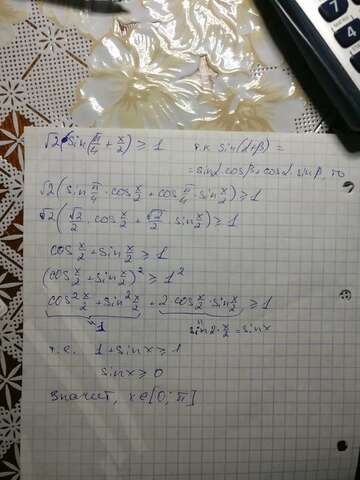 √2 sin(π/4 + x/2) ≥ 1
т.к sin(α+β) =
= sinα cosβ + cosα sinβ, то
√2(sin π/4 · cos x/2 + cos π/4 · sin x/2) ≥ 1
√2(√2/2 · cos x/2 + √2/2 · sin x/2) ≥ 1
cos x/2 + sin x/2 ≥ 1
(cos x/2 + sin x/2)² ≥ 1²
cos² x/2 + sin² x/2 + 2 cos x/2 · sin x/2 ≥ 1
"1
" sin 2 · x/2 = sin x
т.е. 1 + sin x ≥ 1
sin x ≥ 0
значит, x ∈ [0; π]